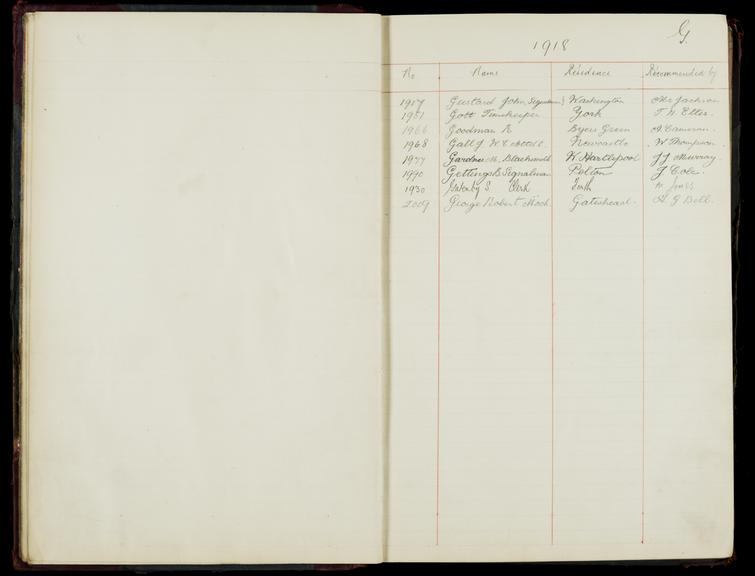 G.
1918
No Name Residence Recommended by
1917 Gustard John, Signalman Washington Mr Jackson
1951 Gott Timekeeper York T. H. Etles.
1966 Goodman R Byers Green A. Cameron.
1968 Gall J W. E Newcastle W Thompson
1977 Gardner M. Blacksmith W. Hartlepool J J Murray.
1990 Gettings B Signalman Pelton J Cole.
1930 S. Clerk York
2009 George Robert Gateshead. A. J Bell.